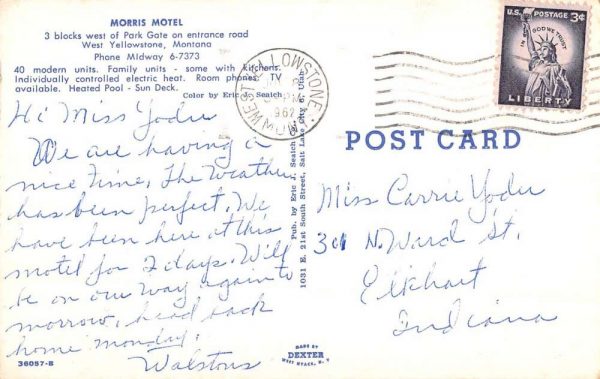 MORRIS MOTEL
3 blocks west of Park Gate on entrance road
West Yellowstone, Montana
Phone MIdway 6-7373
40 modern units. Family units - some with kitchens.
Individually controlled electric heat. Room phones. TV
available. Heated Pool - Sun Deck.
Color by Eric J. Seaich
Hi Miss Yoder
We are having a
nice time, The Weather
has been perfect. We
have been here at this
motel for 2 days. Will
be on our way again to
morrow, head back
home monday.
Walstons
36057-B
Pub. by Eric J. Seaich Co.
1031 E. 21st South Street, Salt Lake City 6, Utah
MADE BY
DEXTER
WEST NYACK, N.Y.
WEST YELLOWSTONE
PM
1962
MONT.
U.S. POSTAGE 3¢
IN GOD WE TRUST
LIBERTY
POST CARD
Miss Carrie Yoder
N. Ward St.
Elkhart
Indiana